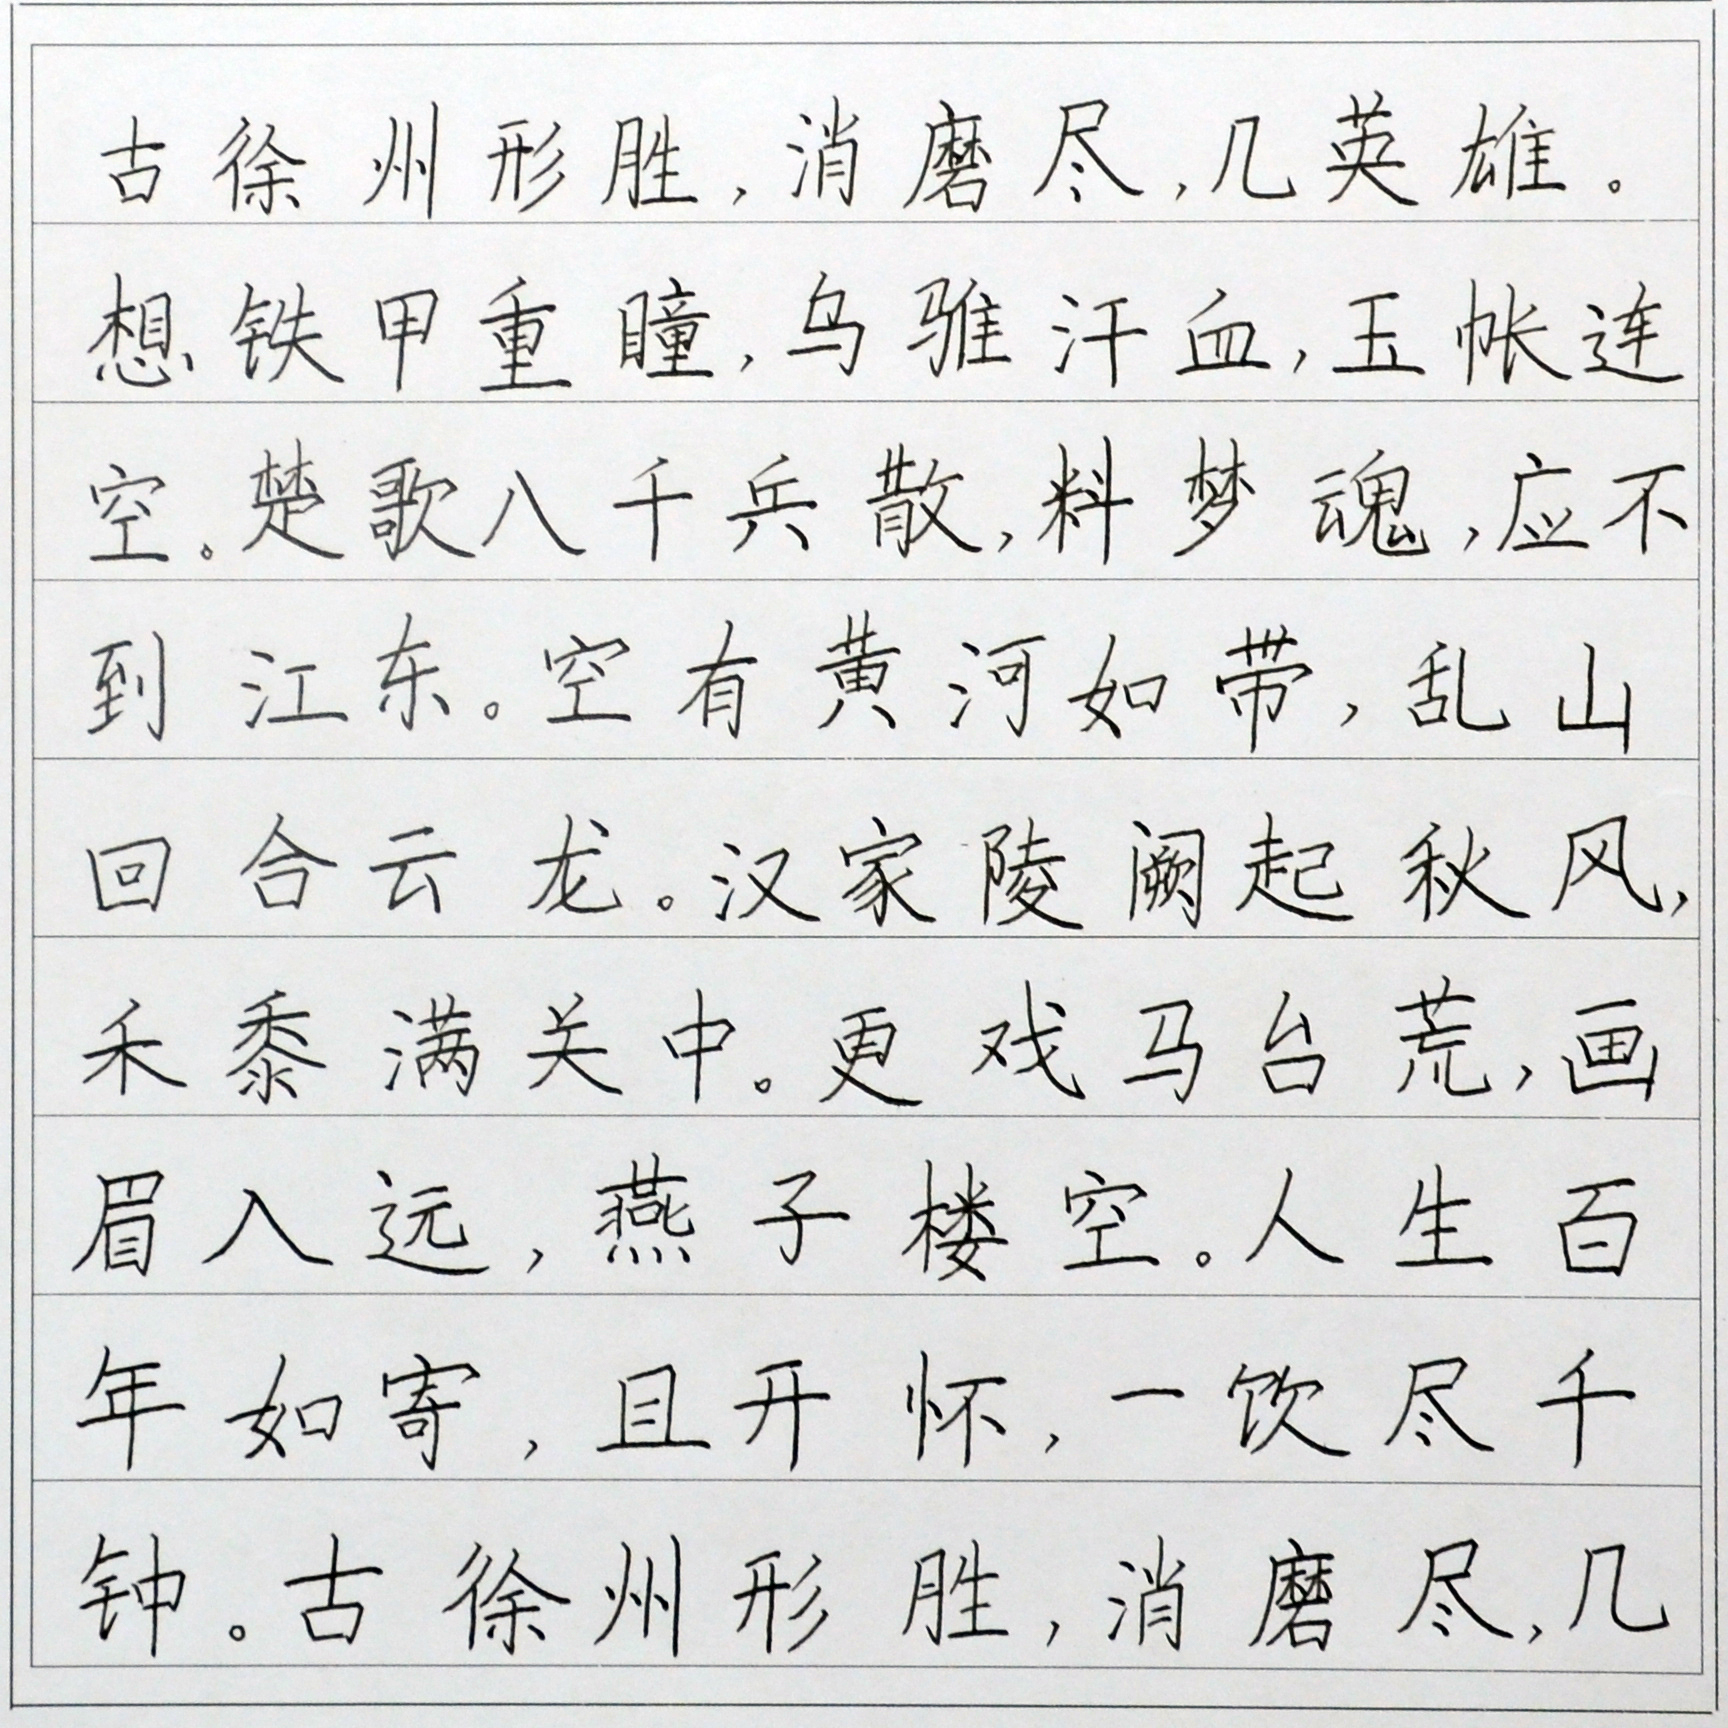 古徐州形胜,消磨尽,几英雄。
想铁甲重瞳,乌骓汗血,玉帐连
空。楚歌八千兵散,料梦魂,应不
到江东。空有黄河如带,乱山
回合云龙。汉家陵阙起秋风,
禾黍满关中。更戏马台荒,画
眉入远,燕子楼空。人生百
年如寄,且开怀,一饮尽千
钟。古徐州形胜,消磨尽,几